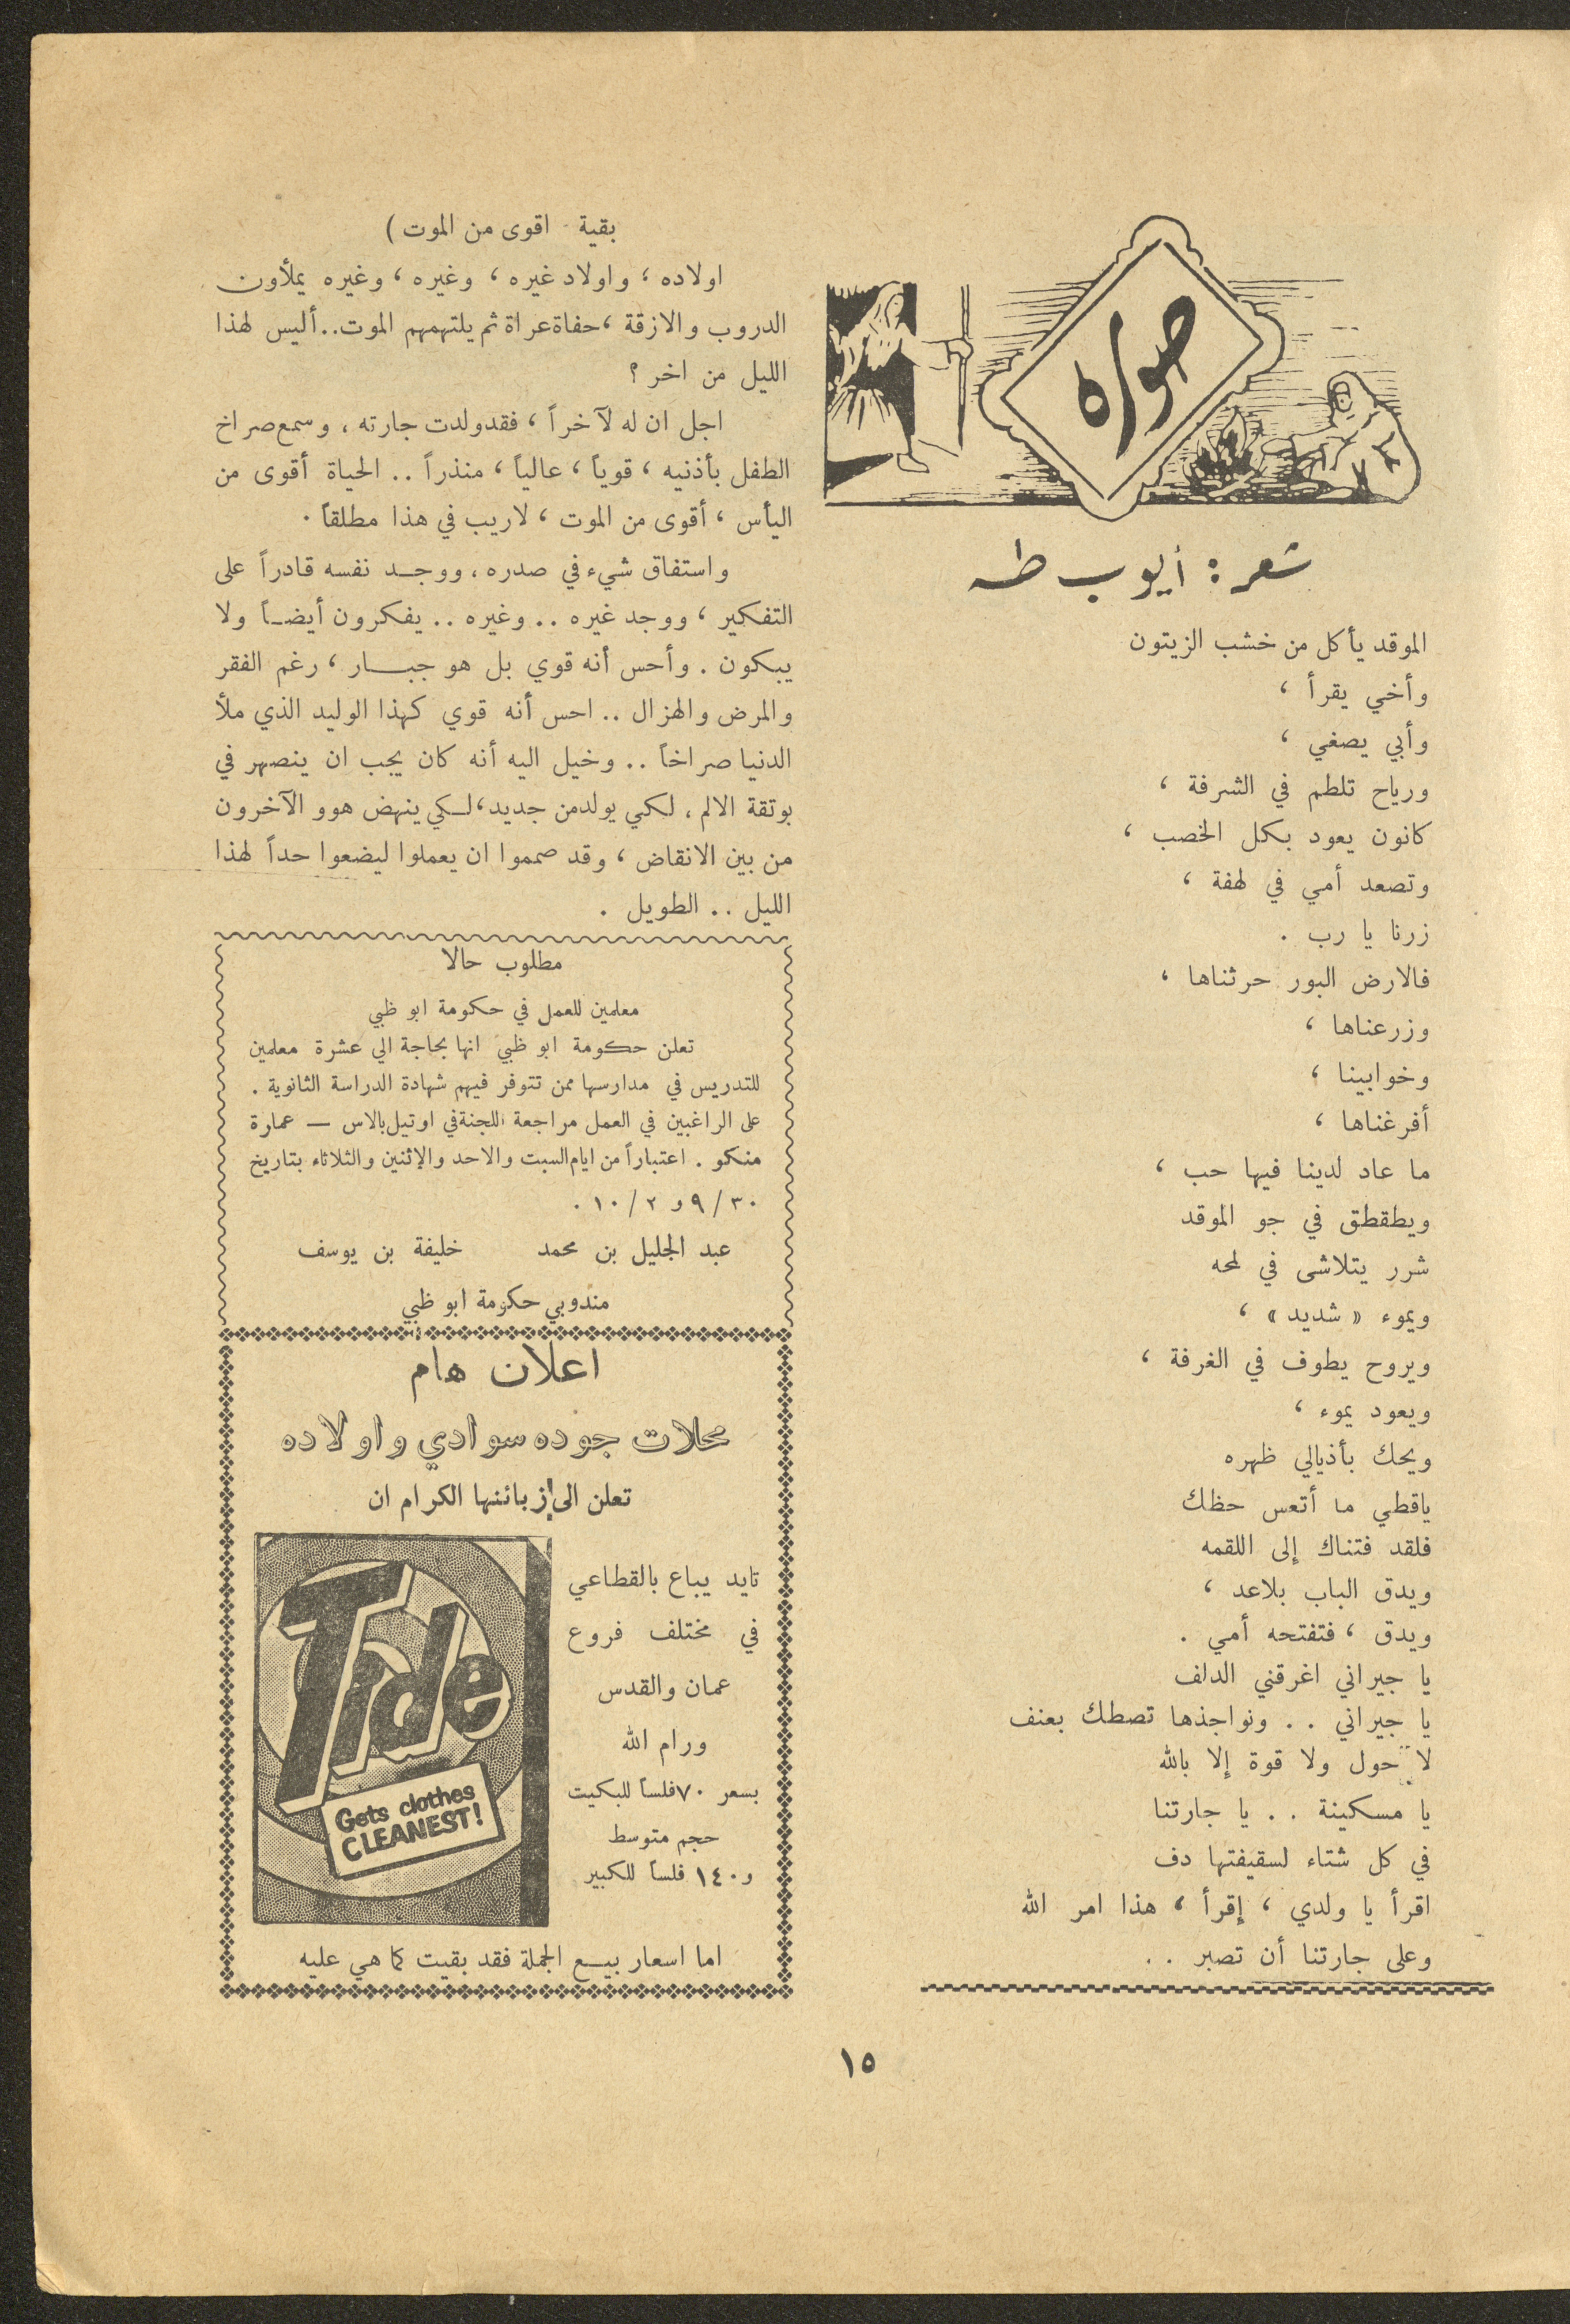 صوره
شعر : أيوب طه
الموقد يأكل من خشب الزيتون
وأخي يقرأ ،
وأبي يصغي ،
ورياح تلطم في الشرفة ،
كانون يعود بكل الخصب ،
وتصعد أمي في لهفة ،
زرنا يا رب .
فالارض البور حرثناها ،
وزرعناها ،
وخوابينا ،
أفرغناها ،
ما عاد لدينا فيها حب ،
ويطقطق في جو الموقد
شرر يتلاشى في لمحه
ويموء « شديد » ،
ويروح يطوف في الغرفة ،
ويعود يموء ،
ويحك بأذيالي ظهره
ياقطي ما أتعس حظك
فلقد فتناك إلى اللقمه
ويدق الباب بلاعد ،
ويدق ، فتفتحه أمي .
يا جيراني اغرقني الدلف
يا جيراني . . ونواجذها تصطك بعنف
لا حول ولا قوة إلا بالله
يا مسكينة . . يا جارتنا
في كل شتاء لسقيفتها دف
اقرأ يا ولدي ، إقرأ ، هذا امر الله
وعلى جارتنا أن تصبر . .
بقية اقوى من الموت )
اولاده ، واولاد غيره ، وغيره ، وغيره يملأون
الدروب والازقة ، حفاة عراة ثم يلتهمهم الموت .. أليس لهذا
الليل من اخر ؟
اجل ان له لآخراً ، فقد ولدت جارته ، وسمع صراخ
الطفل بأذنيه ، قوياً ، عالياً ، منذراً .. الحياة أقوى من
اليأس ، أقوى من الموت ، لاريب في هذا مطلقاً .
واستفاق شيء في صدره ، ووجد نفسه قادراً على
التفكير ، ووجد غيره .. وغيره .. يفكرون أيضاً ولا
يبكون . وأحس أنه قوي بل هو جبار ، رغم الفقر
والمرض والهزال .. احس أنه قوي كهذا الوليد الذي ملأ
الدنيا صراخاً .. وخيل اليه أنه كان يجب ان ينصهر في
بوتقة الالم ، لكي يولد من جديد ، لكي ينهض هو و الآخرون
من بين الانقاض ، وقد صمموا ان يعملوا ليضعوا حداً لهذا
الليل .. الطويل .
مطلوب حالا
معلمين للعمل في حكومة ابو ظبي
تعلن حكومة ابو ظبي انها بحاجة الي عشرة معلمين
للتدريس في مدارسها ممن تتوفر فيهم شهادة الدراسة الثانوية .
على الراغبين في العمل مراجعة اللجنة في اوتيل بالاس — عمارة
منكو . اعتباراً من ايام السبت والاحد والإثنين والثلاثاء بتاريخ
٩/٣٠ و ١٠/٢ .
عبد الجليل بن محمد خليفة بن يوسف
مندوبي حكومة ابو ظبي
اعلان هام
محلات جوده سوادي واولاده
تعلن الى زبائنها الكرام ان
تايد يباع بالقطاعي
في مختلف فروع
عمان والقدس
ورام الله
بسعر ٧٠ فلساً للبكيت
حجم متوسط
و١٤٠ فلساً للكبير
Tide
Gets clothes
CLEANEST!
اما اسعار بيع الجملة فقد بقيت كما هي عليه
١٥